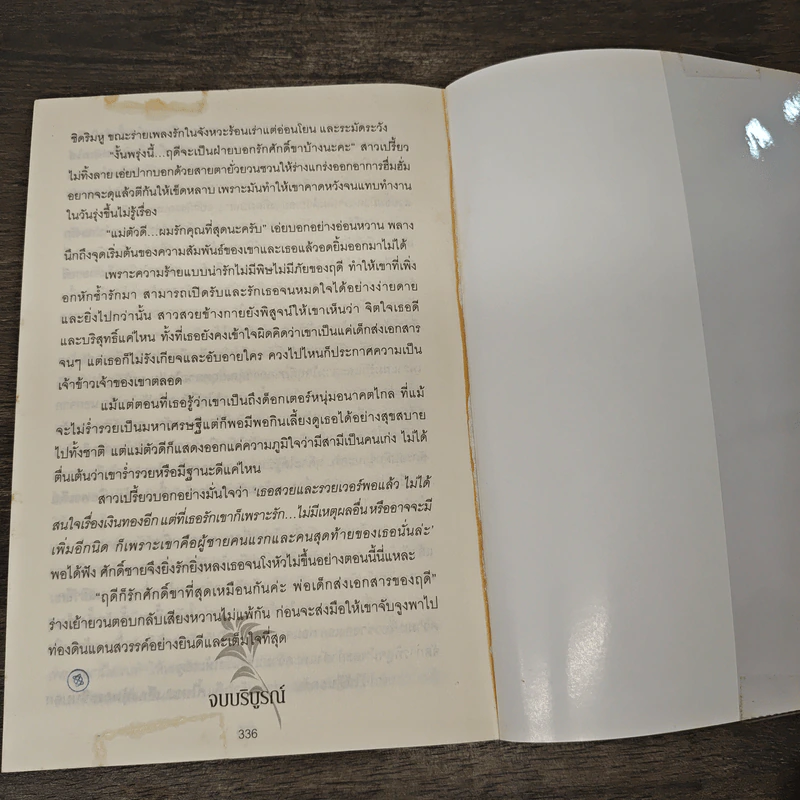 ชิดริมหู ขณะร่ายเพลงรักในจังหวะร้อนเร่าแต่อ่อนโยน และระมัดระวัง
"งั้นพรุ่งนี้...ฤดีจะเป็นฝ่ายบอกรักศักดิ์ขาบ้างนะคะ" สาวเปรี้ยว
ไม่ทิ้งลาย เอ่ยปากบอกด้วยสายตายั่วยวนชวนให้ร่างแกร่งออกอาการฮึ่มฮั่ม
อยากจะดุแล้วตีก้นให้เข็ดหลาบ เพราะมันทำให้เขาคาดหวังจนแทบทำงาน
ในวันรุ่งขึ้นไม่รู้เรื่อง
"แม่ตัวดี...ผมรักคุณที่สุดนะครับ" เอ่ยบอกอย่างอ่อนหวาน พลาง
นึกถึงจุดเริ่มต้นของความสัมพันธ์ของเขาและเธอแล้วอดยิ้มออกมาไม่ได้
เพราะความร้ายแบบน่ารักไม่มีพิษไม่มีภัยของฤดี ทำให้เขาที่เพิ่ง
อกหักช้ำรักมา สามารถเปิดรับและรักเธอจนหมดใจได้อย่างง่ายดาย
และยิ่งไปกว่านั้น สาวสวยข้างกายยังพิสูจน์ให้เขาเห็นว่า จิตใจเธอดี
และบริสุทธิ์แค่ไหน ทั้งที่เธอยังคงเข้าใจผิดคิดว่าเขาเป็นแค่เด็กส่งเอกสาร
จนๆ แต่เธอก็ไม่รังเกียจและอับอายใคร ควงไปไหนก็ประกาศความเป็น
เจ้าข้าวเจ้าของเขาตลอด
แม้แต่ตอนที่เธอรู้ว่าเขาเป็นถึงด็อกเตอร์หนุ่มอนาคตไกล ที่แม้
จะไม่ร่ำรวยเป็นมหาเศรษฐีแต่ก็พอมีพอกินเลี้ยงดูเธอได้อย่างสุขสบาย
ไปทั้งชาติ แต่แม่ตัวดีก็แสดงออกแค่ความภูมิใจว่ามีสามีเป็นคนเก่ง ไม่ได้
ตื่นเต้นว่าเขาร่ำรวยหรือมีฐานะดีแค่ไหน
สาวเปรี้ยวบอกอย่างมั่นใจว่า 'เธอสวยและรวยเวอร์พอแล้ว ไม่ได้
สนใจเรื่องเงินทองอีก แต่ที่เธอรักเขาก็เพราะรัก...ไม่มีเหตุผลอื่น หรืออาจจะมี
เพิ่มอีกนิด ก็เพราะเขาคือผู้ชายคนแรกและคนสุดท้ายของเธอนั่นล่ะ'
พอได้ฟัง ศักดิ์ชายจึงยิ่งรักยิ่งหลงเธอจนโงหัวไม่ขึ้นอย่างตอนนี้นี่แหละ
"ฤดีก็รักศักดิ์ขาที่สุดเหมือนกันค่ะ พ่อเด็กส่งเอกสารของฤดี"
ร่างเย้ายวนตอบกลับเสียงหวานไม่แพ้กัน ก่อนจะส่งมือให้เขาจับจูงพาไป
ท่องดินแดนสวรรค์อย่างยินดีและเต็มใจที่สุด
จบบริบูรณ์
336